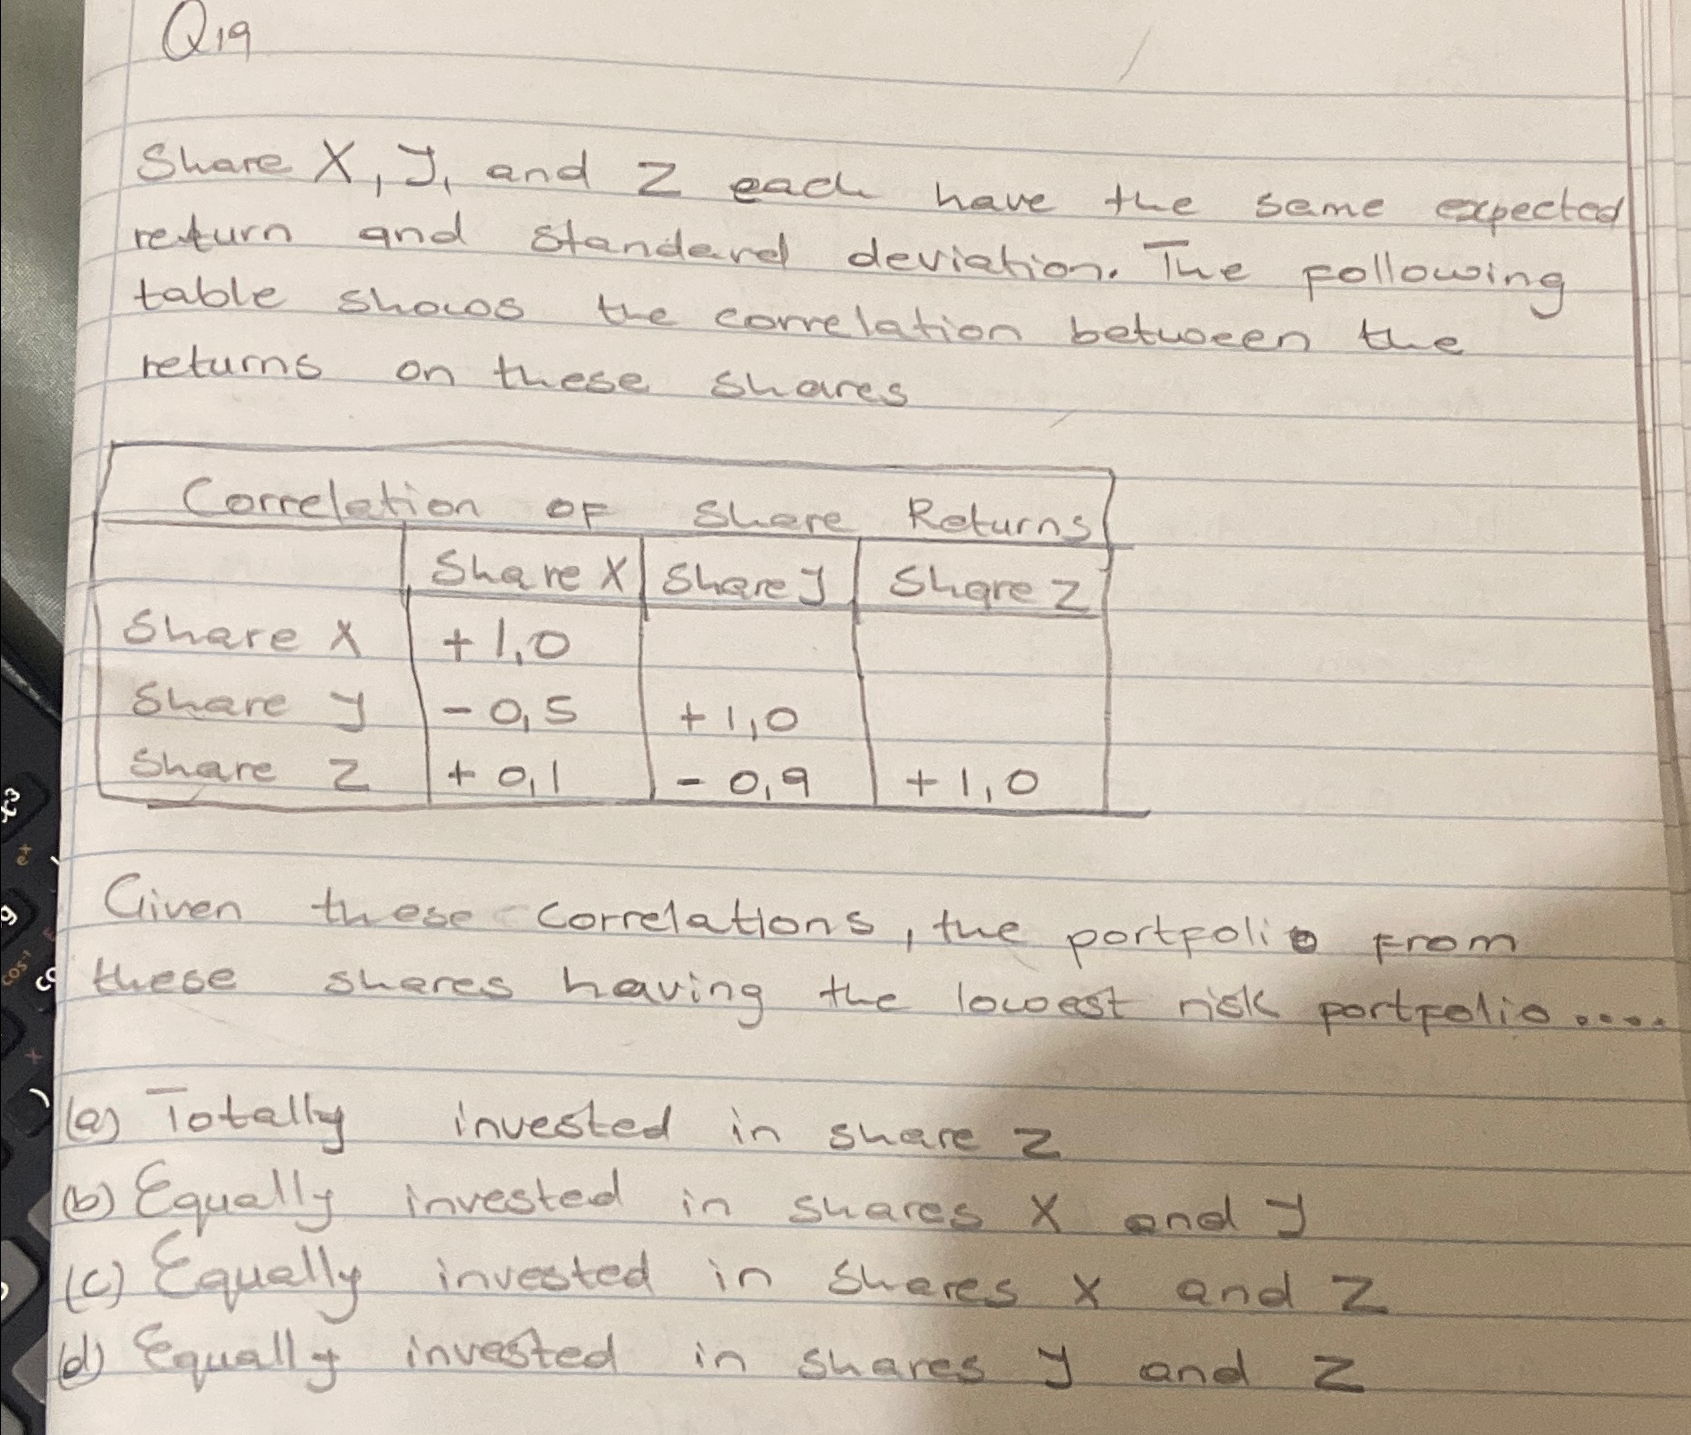 Q19
Share X, Y, and Z each have the same expected
return and standard deviation. The following
table shows the correlation between the
returns on these shares
Correlation of Share Returns
Share X Share Y Share Z
Share X +1,0
Share Y -0,5 +1,0
Share Z +0,1 -0,9 +1,0
Given these correlations, the portfolio from
these shares having the lowest risk portfolio....
(a) Totally invested in share Z
(b) Equally invested in shares X and Y
(c) Equally invested in shares X and Z
(d) Equally invested in shares Y and Z